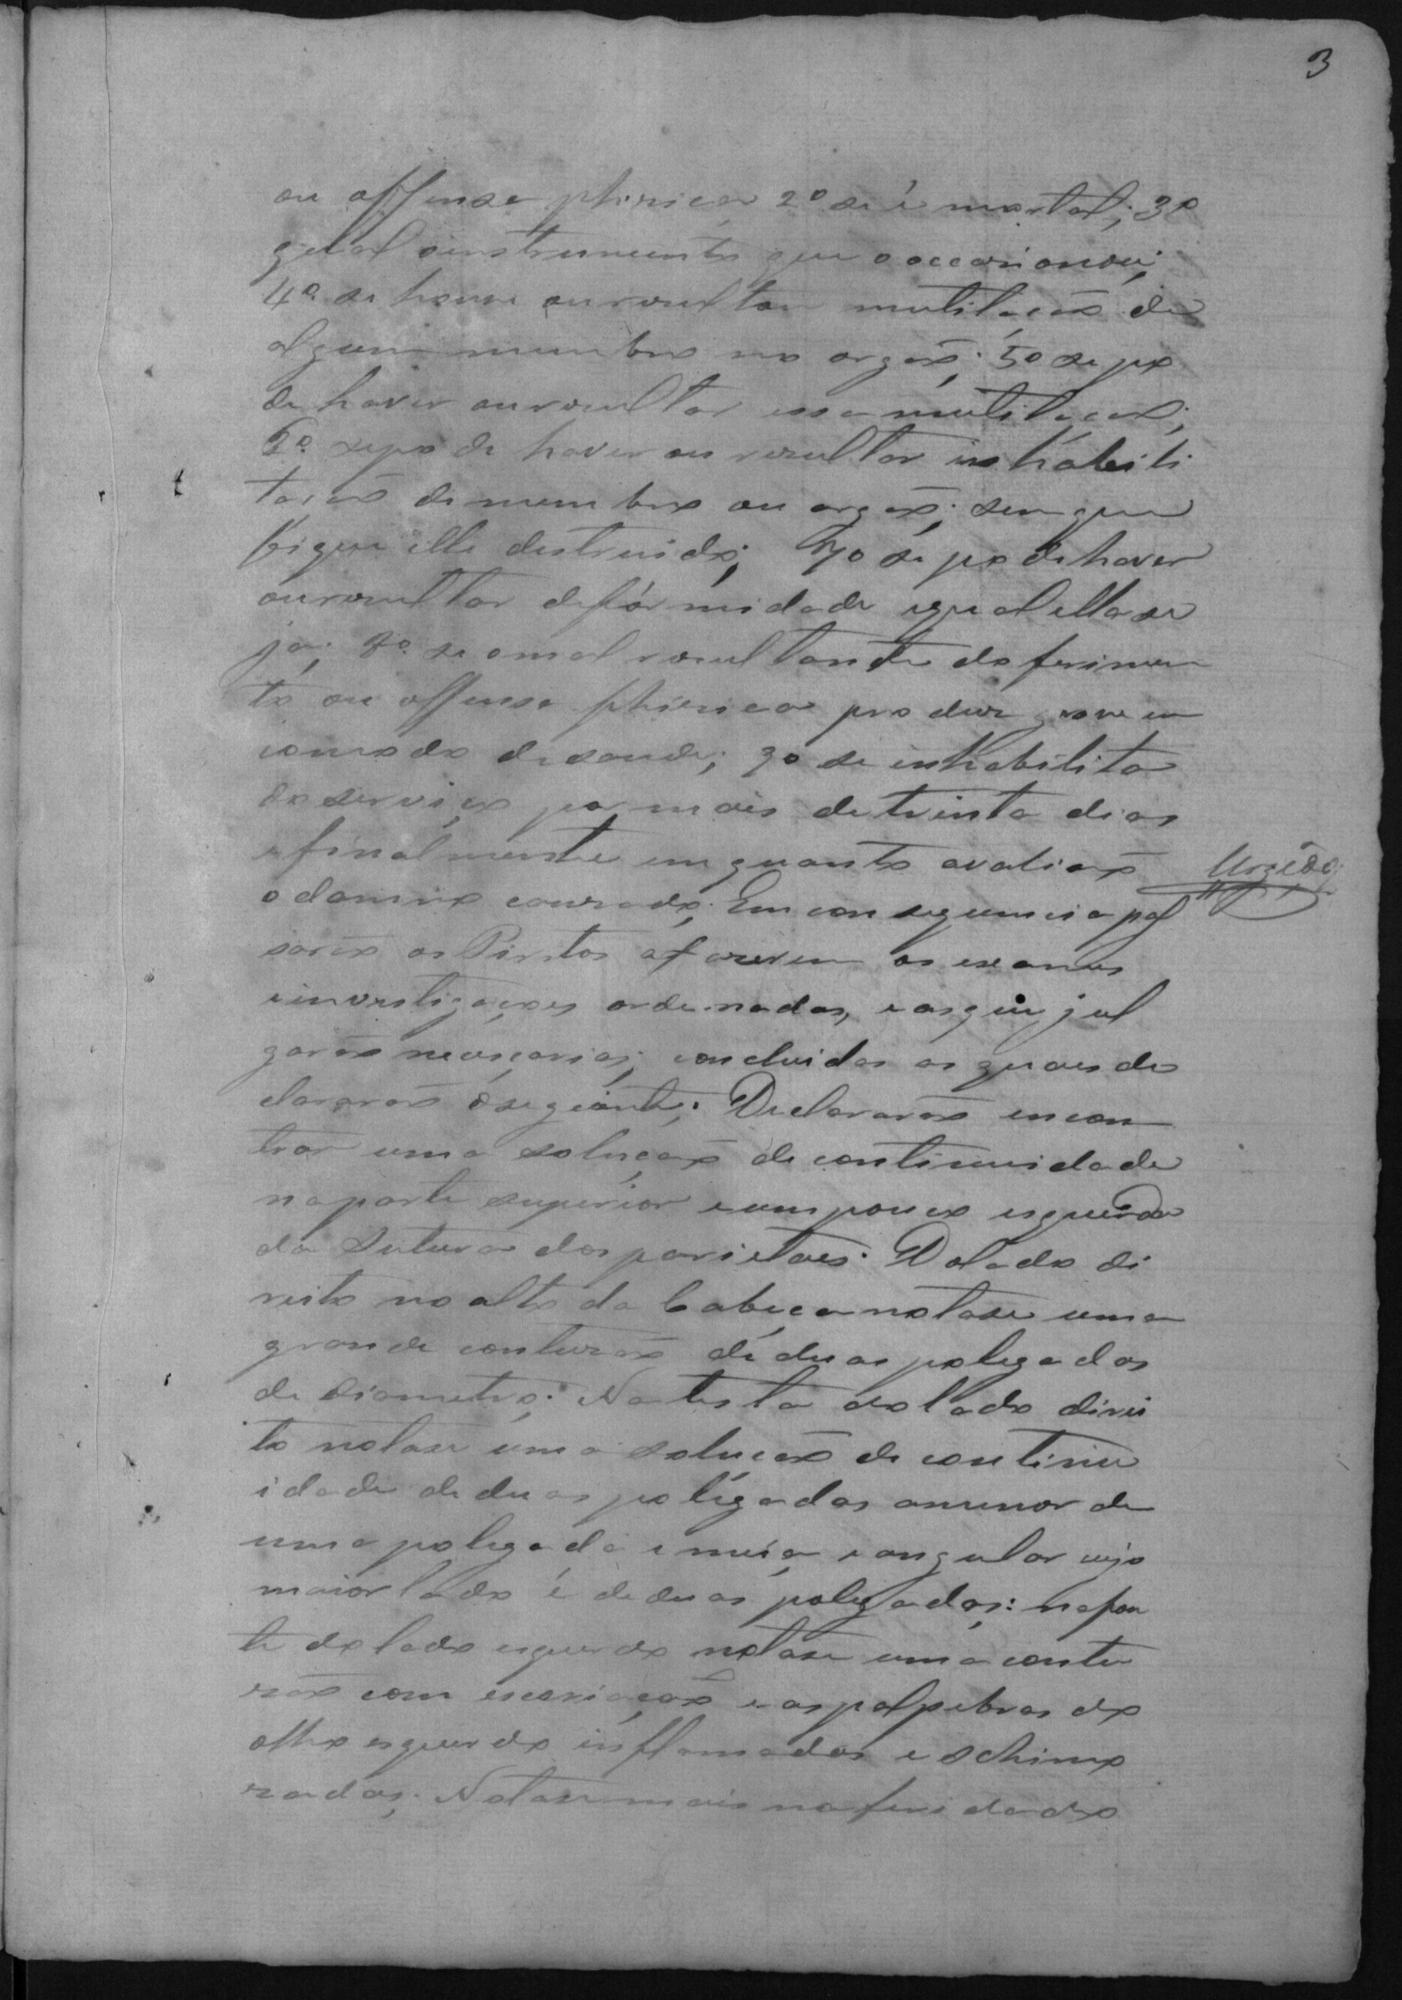 3
ou offensa phisica 2º se é mortal; 3º
qual o instrumento que o occasionou;
4º se houve ou resultou mutilação de
algum membro ou orgão; 5º se po
de haver ou resultar essa mutilação;
6º se pode haver ou resultar inhabili
tação de membro ou orgão; sem que
fique elle destruido; 7º se pode haver
ou resultar deformidade e qual ella se
ja; 8º se o mal resultante do ferimen
to ou offensa phisica produz grave in
comodo de saude; 9º se inhabilita
do serviço por mais de trinta dias
e finalmente em quanto avalião
o damno causado. Em consequencia pas
sarão os Piritos a fazerem os exames
e investigações ordenadas, e as que jul
garão necessarias; concluidas as quaes de
clararão o seguinte: Declararão encon
trar uma solução de continuidade
na parte superior e um pouco esquerda
da sutura dos parietaes. Do lado di
reito no alto da Cabeça notase uma
grande contuzão de duas polegadas
de diametro. Na testa do lado direi
to notase uma solução de continu
idade de duas polegadas a menor de
uma polegada e meia e angular cujo
maior lado é de duas polegadas: na fon
te do lado esquerdo notase uma contu
zão com escoriação e as palpebras do
olho esquerdo inflamadas e echimo
zadas. Notase mais na ferida do